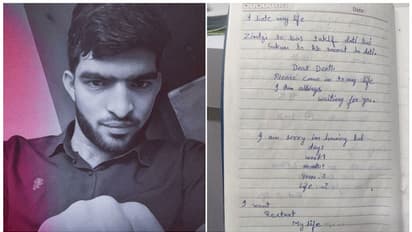 Date:
I hate my life
Zindgi to bas taklif deti hai
Sukun to bs maut hi deti.
Dear Death
Please come in to my life
I am always
waiting for you.
I am sorry im having bad
day?
week?
month?
year..?
life ..?
I want
Restart
My life